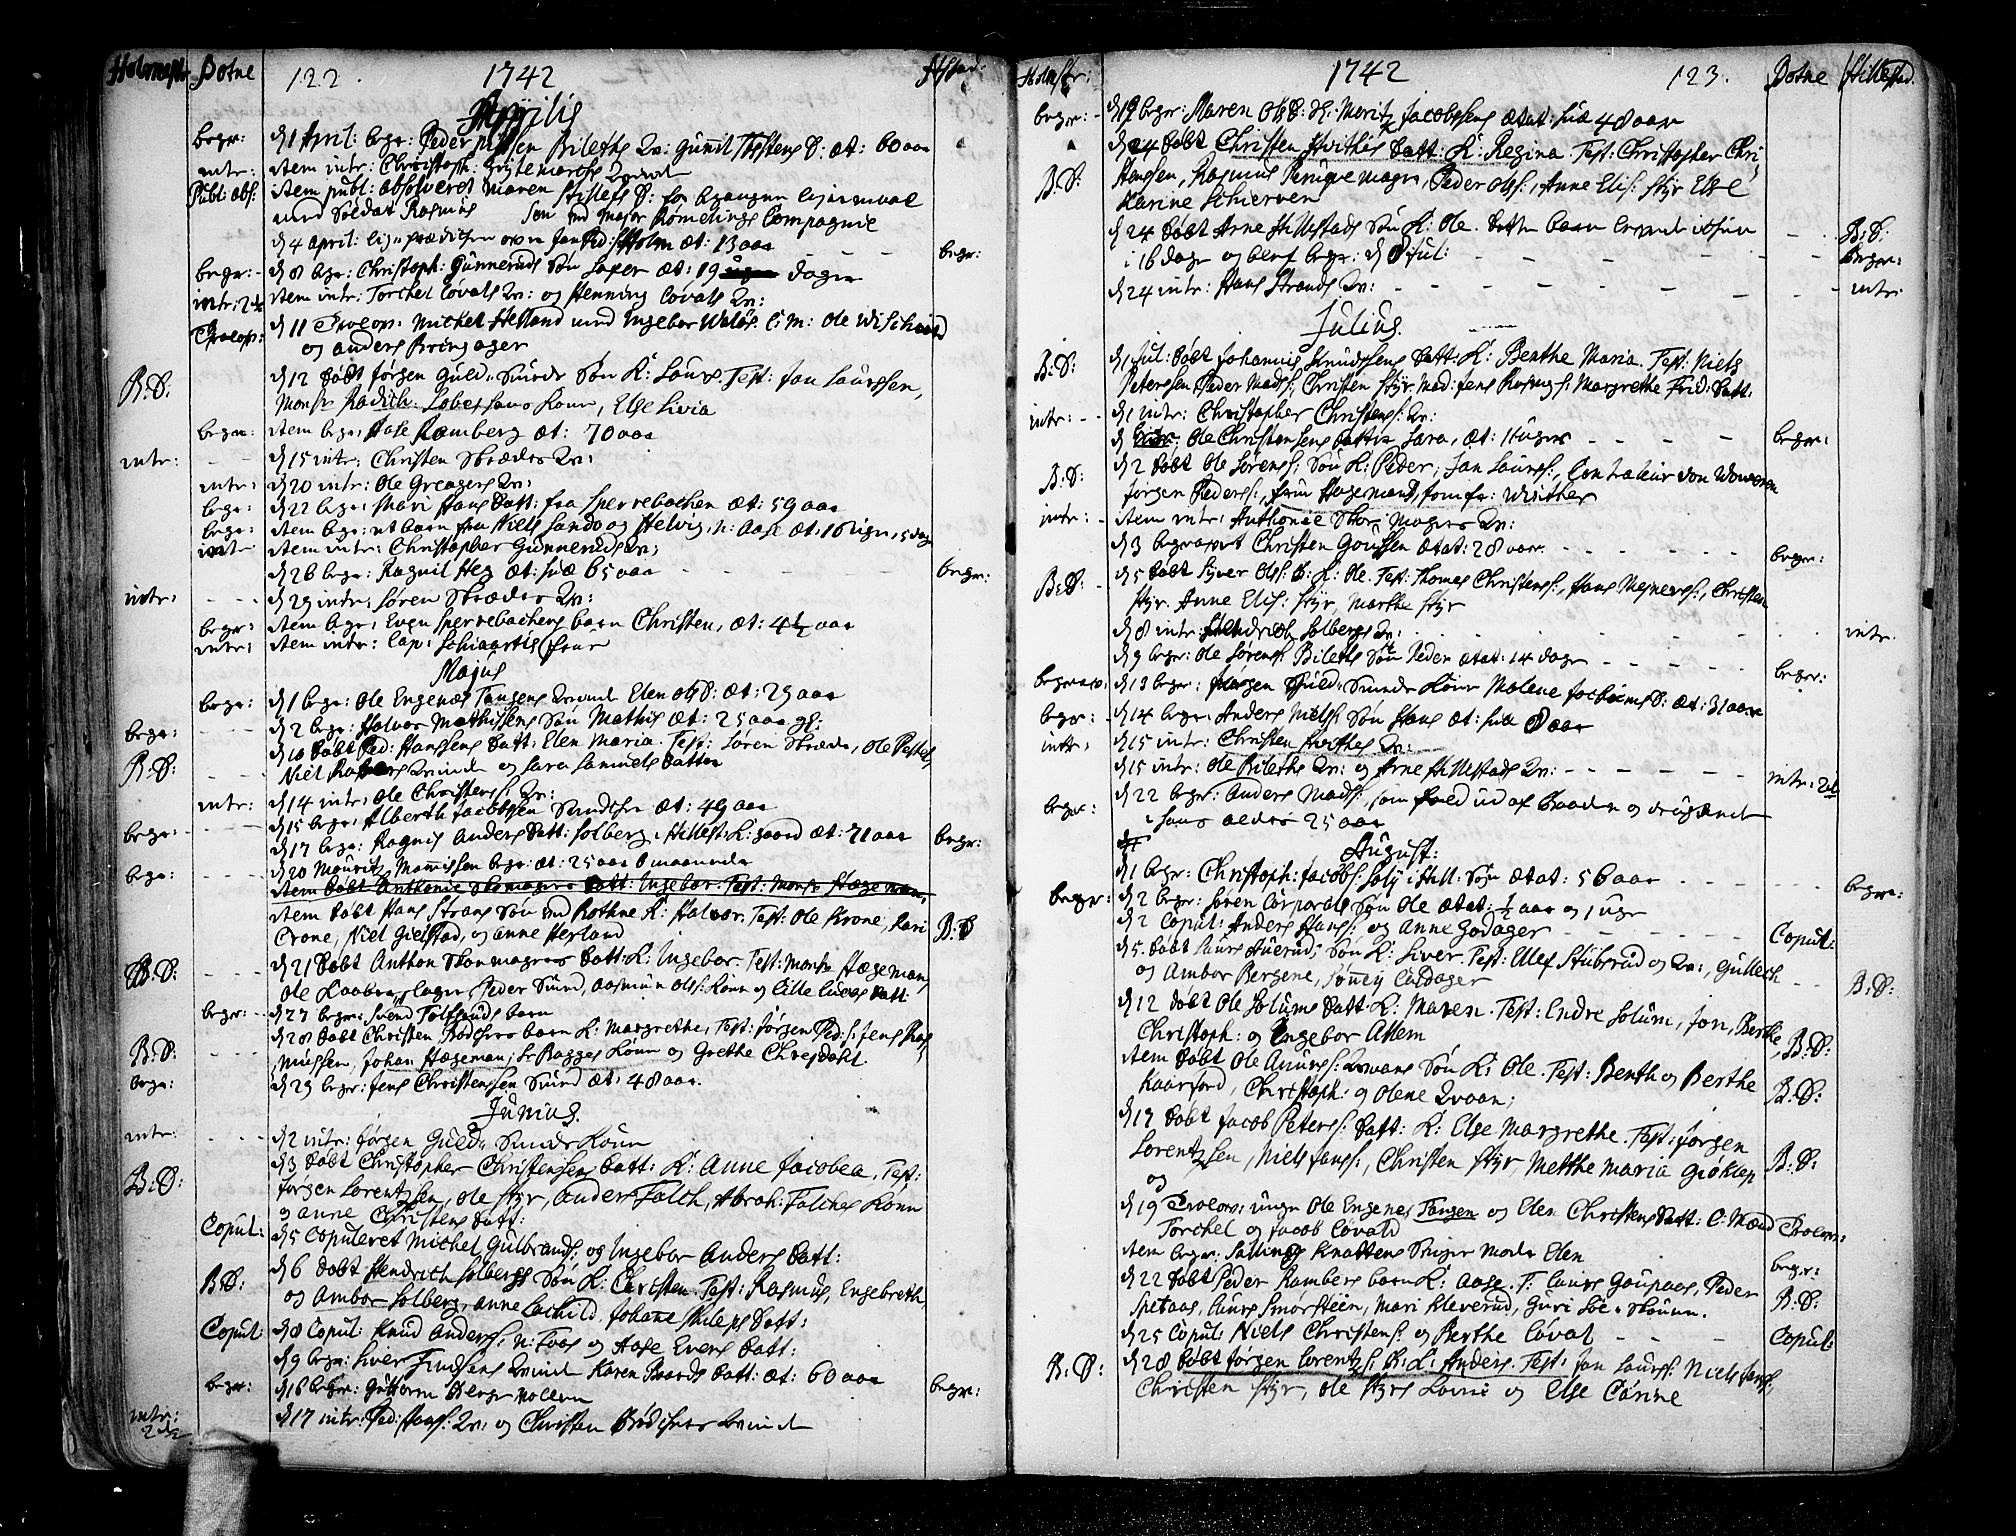 Holmestr: Botne 122. 1742 Hillestad:
Aprilis
begr: d 1 April: begr: Peder Nilsen Bileths Qv: Gunil Thostens D: æt: 60 aar
intr: item intr: Christoph: Qvinde
Publ: abs: item publ: absolveret Maren Nilles D: for begangen leiermaal
med Soldat Rasmus Søn ind Major Rømelings Compagnie
d 4 april: liig præditken over Jan Ped: Holm æt: 13 aar
begr: d 8 begr: Christoph: Gunneruds Søn Jasper æt: 19 dager begr:
intr: 2de item intr: Torchel Løvals Qv: og Henning Løvals Qv:
Proclam: d 11 Proclam: Michel Helland med Ingebor Wales C:M: Ole Wischerud
og Anders Bringager
B:D: d 12 Døbt Jørgen Guld-Smeds Søn K: Laurs Test: Jan Laurssen,
Monsr Radich: Tobes hans Kone, Else Livia
begr: item begr: Aase Ramberg æt: 70 aar
intr: d 15 intr: Christen Skræders Qv:
intr: d 20 intr: Ole Greagers Qv:
begr: d 22 begr: Mari Hans Datt: fra Sperrebachen æt: 59 aar
begr: item begr: et barn fra Niels Sando og Helvig, n: Aase æt: 16 uger, 5 dage
intr item intr: Christopher Gunneruds Qv:
d 26 begr: Ragnil Heg æt: suæ 65 aar begr:
intr: d 29 intr: Søren Skræders Qv:
begr: item begr: Even Sperrebachens barn Christen, æt: 4½ aar
intr: item intr: Cap: Schiaartis frue
Majus
begr: d 1 begr: Ole Engenes Tangens Qvinde Elen Ols D: æt: 29 aar
begr: d 2 begr: Halvor Mathissens Søn Mathis æt: 25 aar
B:D: d 10 Døbt Ped: Hanssens Datt: Elen Maria. Test: Søren Skræder, Ole Pettels,
Niel Qvinde og Sara Samuels Datter
intr: d 14 intr: Ole Christens: Qv:
d 15 begr: Alberth Jacobssen æt: 49 aar
begr: d 17 begr: Ragnil Anders Datt: Solberg i Hillest: K: gaard æt: 71 aar begr:
begr: d 20 Mauritz Mannissen begr: æt: 25 aar 6 maaneder
item Døbt Anthonie Skomagers Datt: Ingebor: Test: Monsr Hageman,
item Døbt Hans Strans Søn ved Rothne K: Halvor. Test: Ole Krone, Kari
Crone, Niel Gielstad, og Anne Herland B:D
B:D: d 21 Døbt Anthon Skomagers Datt: K: Ingebor. Test: Monsr Hageman,
Ole Kaaber-slager, Peder Smed, Aasmun Ols: Kone og Lille Lucas Datt:
begr: d 27 begr: Svend Tolfsruds barn
d 28 Døbt Christen Rødchers barn K: Margrethe, Test: Jørgen Ped:s: Jens Ras,
B:D: mussen, Johan Hageman, Sr Bagges Kone og Grethe Chresdahl
begr: d 29 begr: Jens Christenssen Smed æt: 48 aar.
Junius.
intr: d 2 intr: Jørgen Guld-Smeds Kone
B:D: d 3 Døbt Christopher Christensens Datt: K: Anne Jacobea. Test:
Jørgen Lorentzsen, Ole Styr, Anders Falch, Abrah: Falches Kone
og Anne Christens Datt:
Copul: d 5 Copuleret Michel Gulbrands: og Ingebor Anders Datt:
B:D: d 6 Døbt Hendrich Solbergs Søn K: Christen. Test: Rasmus, Engebreth
og Ambor Solberg, Anne Lachild, Johane Philips Datt:
Copul: d 8 Copul: Knud Anders: n: Foss og Aase Evers Datt:
d 9 begr: Siver Qvinde Karen Baards Datt: æt: 60 aar
begr: d 16 begr: Guttorm Berge Nollum begr:
intr: 2de d 17 intr: Ped: Hans: Qv: og Christen Rødchers Qvinde
Holmstr: 1742 123. Botne Hillestad.
begr: d 19 begr: Maren Ols D: Sl: Moritz Jacobsens ætat: suæ 48 aar
d 24 Døbt Christen Hvithes Datt: K: Regina Test: Christopher Chri,
B:D: stensen, Rasmus Peruqve mager, Peder Ols:, Anne Elis: Styr Else
Karine Schierven
d 24 Døbt Arne Hillestads Søn K: Ole. Dette barn levede ichun B:D:
i 16 dager og blef begr: d 8 Jul: Begr:
d 24 intr: Hans Strands Qv: intr:
Julius.
B:D: d 1 Jul: Døbt Johannis Knudssens Datt: K: Benthe Maria. Test: Niels
Peterssen, Peder Mads:, Christen Styr Mad: Jens Rasmus:, Margrethe Frid: Datt:
intr: d 1 intr: Christopher Christens: Qv:
d begr: Ole Christensens Datter Sara, æt: 11 uger begr:
B:D: d 2 Døbt Ole Sørens: Søn K: Peder, Jan Laurs:, Contraleur von Woweren
Jørgen Peders:, frue Hagemand, Jomfr: Winther
intr: item intr: Anthonie Skomagers Qv:
d 3 begravet Christen Gousen ætat: 28 aar begr:
B:D: d 5 Døbt Syver Ols: B: K: Ole. Test: Thomes Christens:, Hans Mejners:, Christen
Styr. Anne Elis: Styr, Marthe Styr
d 8 intr: Hendrich Solbergs Qv: intr.
d 9 begr: Ole Sørens: Bileths Søn Peder ætat: 14 dage begr:
begraw: d 13 begr: Jørgen Guld-Smeds Kone Malene Jacobens D: æt: 31 aar
begr: d 14 begr: Anders Niels: Søn Hans æt: suæ 8 aar
intr: d 15 intr: Christen Hvithes Qv:
d 15 intr: Ole Bileths Qv: og Arne Hillestads Qv: intr: 2de
begr: d 22 begr: Anders Mads: som fald ud af Baaden og druknede
i hans alder 25 aar
August:
d 1 begr: Christoph: Jacobs: Soly i Hill: Søn ætat: 56 aar begr:
begr: d 2 begr: Søren Corporals Søn Ole ætat: ½ aar og 1 uge
d 2 Copul: Anders Hans: og Anne Godager Copul:
d 5. Døbt Laurs Huerud, Søn K: Siver Test: Ellef Stubrud og Qv:, Gullech
og Ambor Bergene, Sønnev Lildager B:D:
d 12 Døbt Ole Solums Datt: K: Maren. Test: Endre Solum, Jon, Berthe,
Christoph: og Ingebor Allem B:D:
item Døbt Ole Anuns: Qvans Søn K: Ole. Test: Benth og Berthe
Kaarford, Christoph: og Olene Qvaan; B:D:
d 17 Døbt Jacob Peters: Datt: K: Else Margrethe. Test: Jørgen
Lorentzsen, Niels Jans:, Christen Styr, Metthe Maria Giøklep B:D:
og
d 19 Proclam: unge Ole Engenes Tangen og Elen Christens Datt: C: Mænd Proclam:
Torchel og Jacob Løvald
item begr: Salling Knattens Sviger Moder Elen begr:
d 22 Døbt Peder Rambergs barn K: Aase. T: Laurs Goupaas, Peder
Spetaas, Laurs Smørsteen, Mari Kleverud, Guri Soe i Skouen. B:D:
d 25 Copul: Niels Christens: og Berthe Løval Copul:
B:D: d 28 Døbt Jørgen Lorentzs: B: K: Anders. Test: Jan Laurs: Niels Jans:,
Christen Styr, Ole Styrs Kone og Else Carine